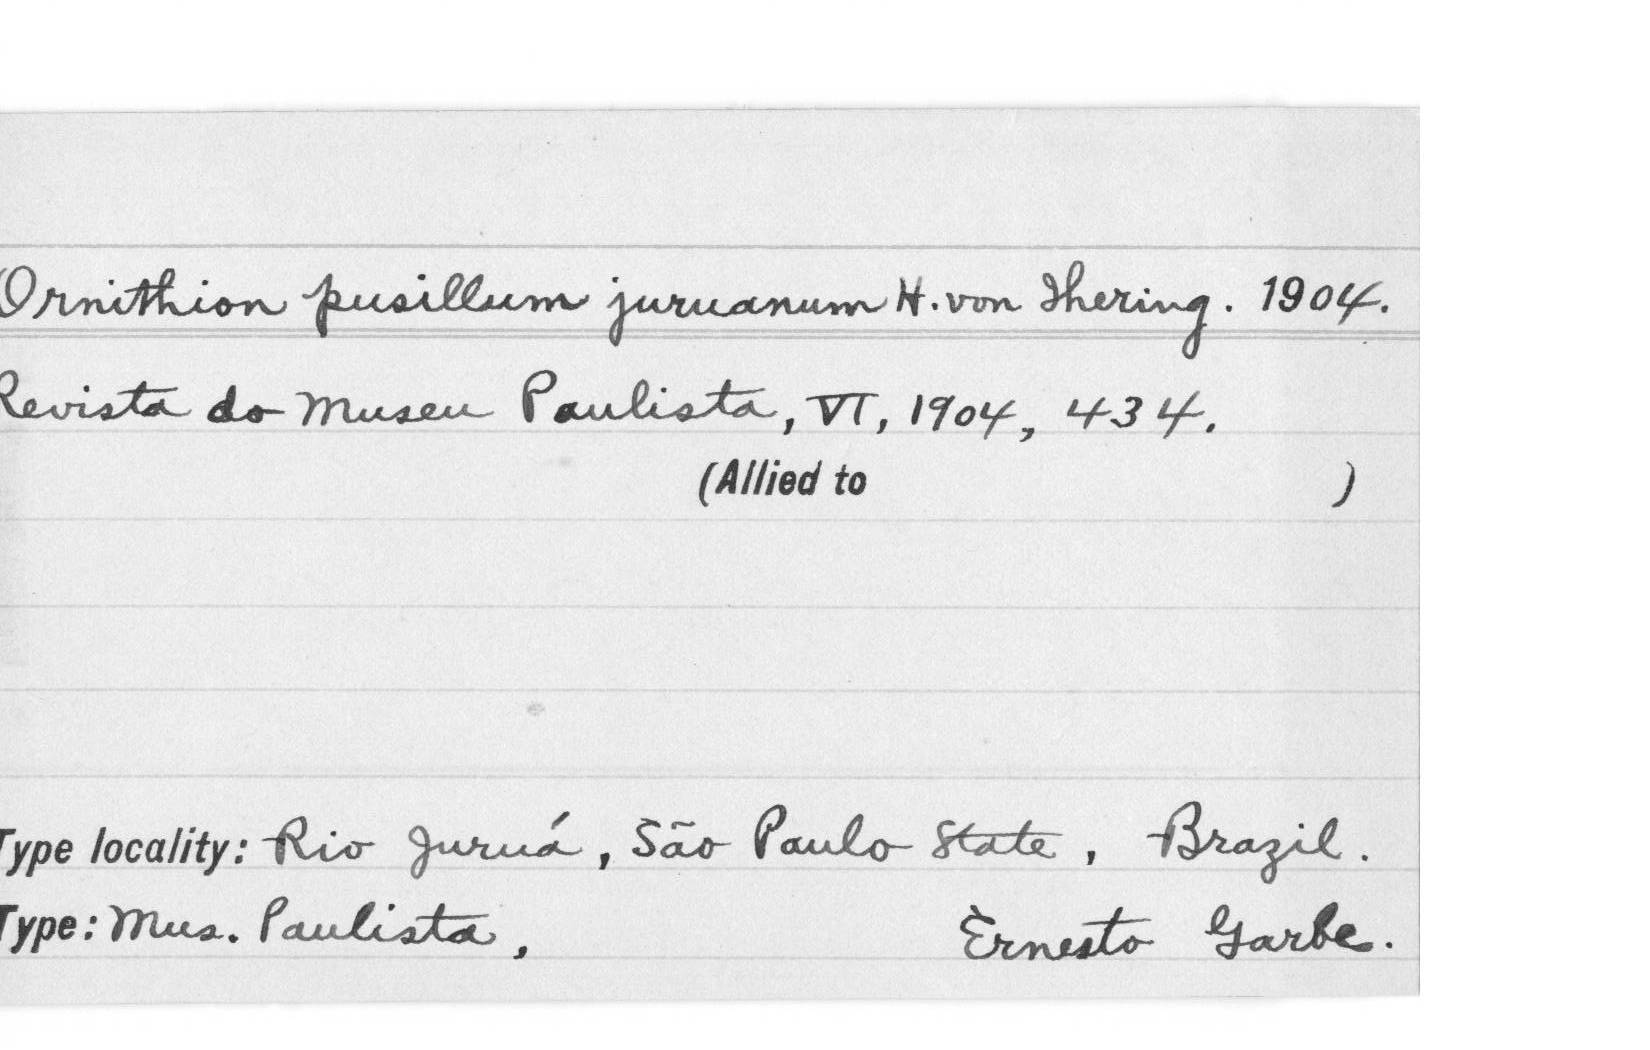 Ornithion pusillum juruanum H. von Ihering. 1904.
Revista do Museu Paulista, VI, 1904, 434.
(Allied to )
Type locality: Rio Juruá, São Paulo State, Brazil.
Type: Mus. Paulista, Ernesto Garbe.